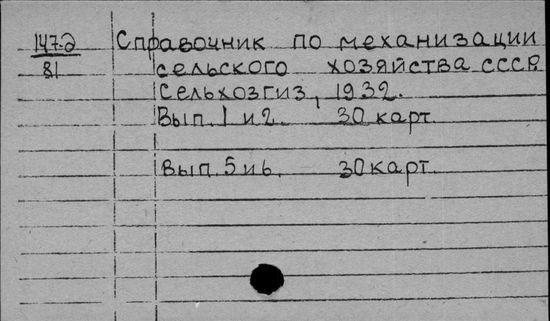 147-Э Справочник по механизации
81 сельского хозяйства СССР
Сельхозгиз, 1932.
Вып. 1 и 2. 30 карт.
Вып. 5 и 6. 30 карт.